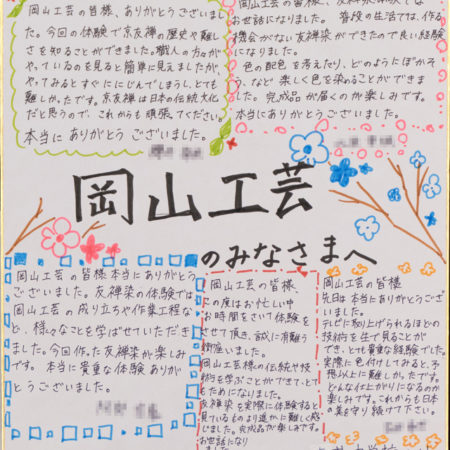 岡山工芸の皆様、ありがとうございまし
た。今回の体験で京友禅の歴史や難し
さを知ることができました。職人の方々が
やっているのを見ると簡単に見えましたが、
やってみるとすぐににじんでしまうし、とても
難しかったです。京友禅は日本の伝統文化
だと思うので、これからも頑張ってください。
本当にありがとうございました。
お世話になりました。普段の生活では、作る
機会がない友禅染ができたので良い経験
になりました。
色の配色を考えたり、どのようにぼかそ
う、など楽しく色を染めることができま
した。完成品が届くのが楽しみです。
本当にありがとうございました。
岡山工芸
のみなさまへ
岡山工芸の皆様本当にありがとう
ございました。友禅染の体験では
岡山工芸の成り立ちや作業工程な
ど、様々なことを学ばせていただき
ました。今回作った友禅染が楽しみ
です。本当に貴重な体験ありが
とうございました。
岡山工芸の皆様、
この度はお忙しい中
お時間をさいて体験を
させて頂き、誠に有難う
御座いました。
岡山工芸様の伝統や技
術を学ぶことができて、とて
もためになりました。
友禅染を実際に体験すると
見ているものより遥かに難しく感
じました。完成品が楽しみです。
お世話になり
ました。
岡山工芸の皆様
先日は本当にありがとうござ
いました。
テレビに取り上げられるほどの
技術を生で見ることが
でき、とても貴重な経験でした。
実際に色付けしてみると、予
想以上に難しかったです。
どんな仕上がりになるのか
楽しみです。これからも日本
の美を守り続けて下さい。